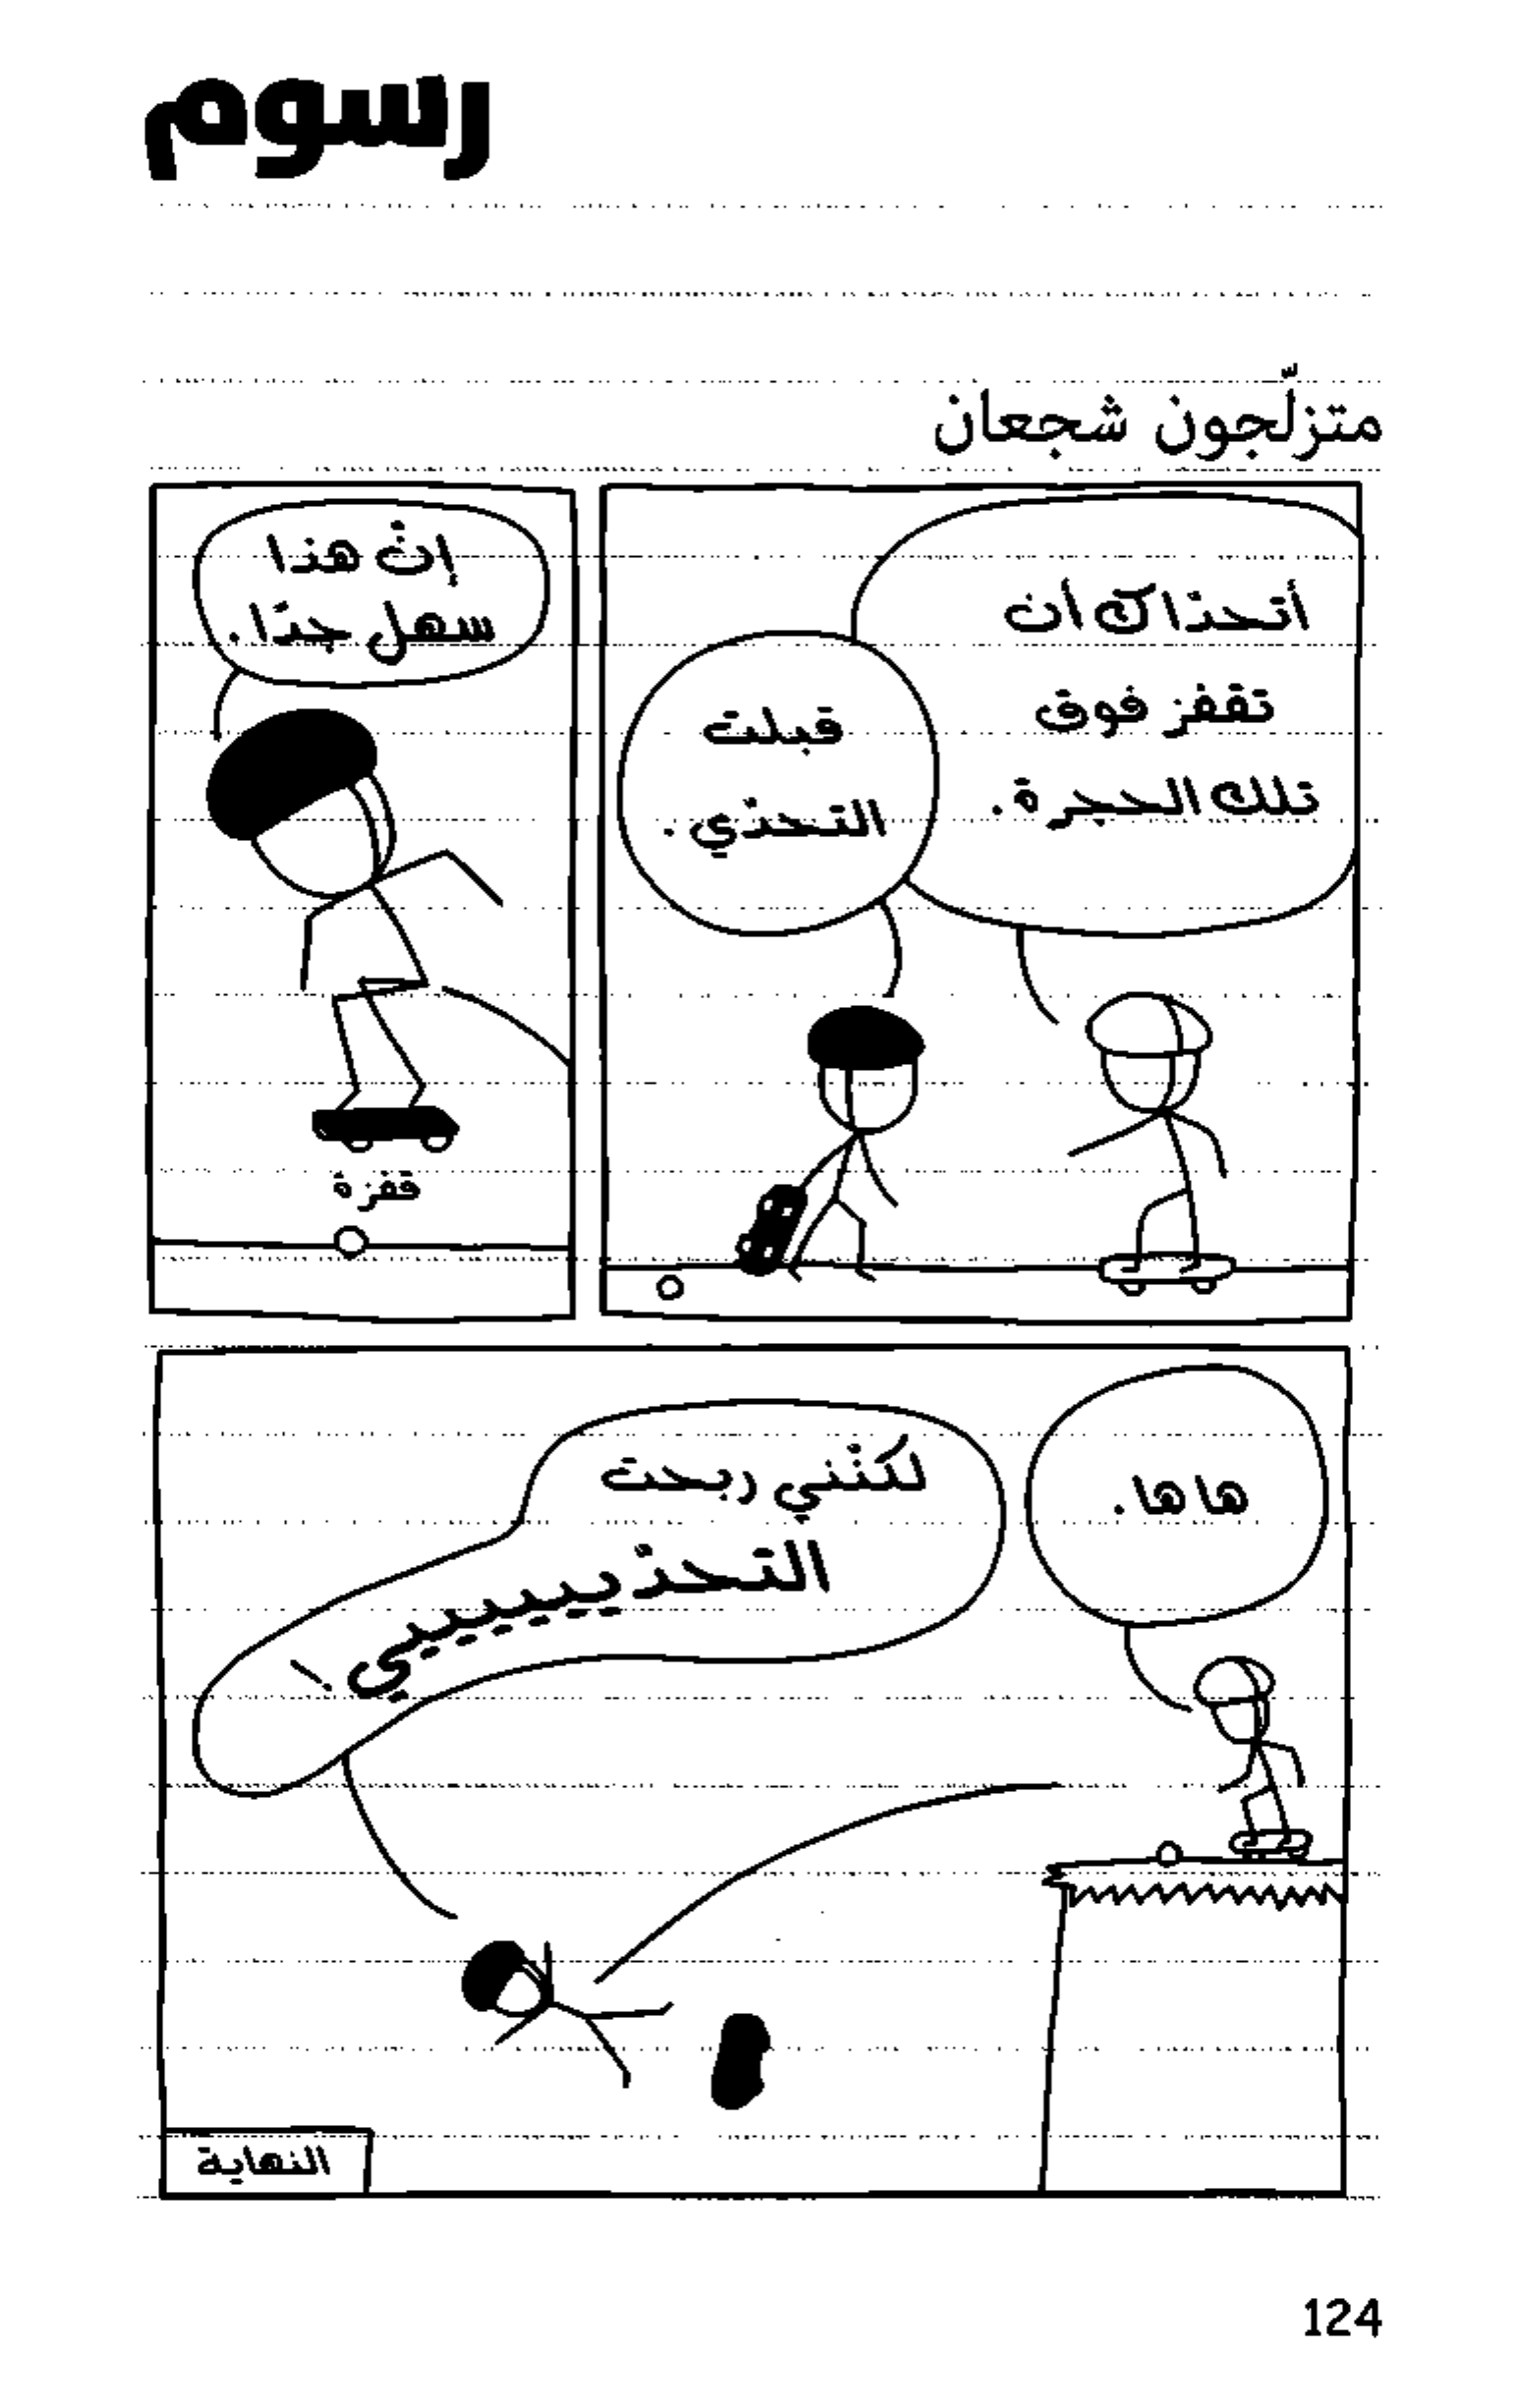 رسوم
متزلّجون شجعان
أتحدّاك أن
تقفز فوق
تلك الحجرة.
قبلت
التحدّي.
إنّ هذا
سهل جدًا.
قفزة
ها ها.
لكنّني ربحت
التحدّيييييي!
النهاية
124